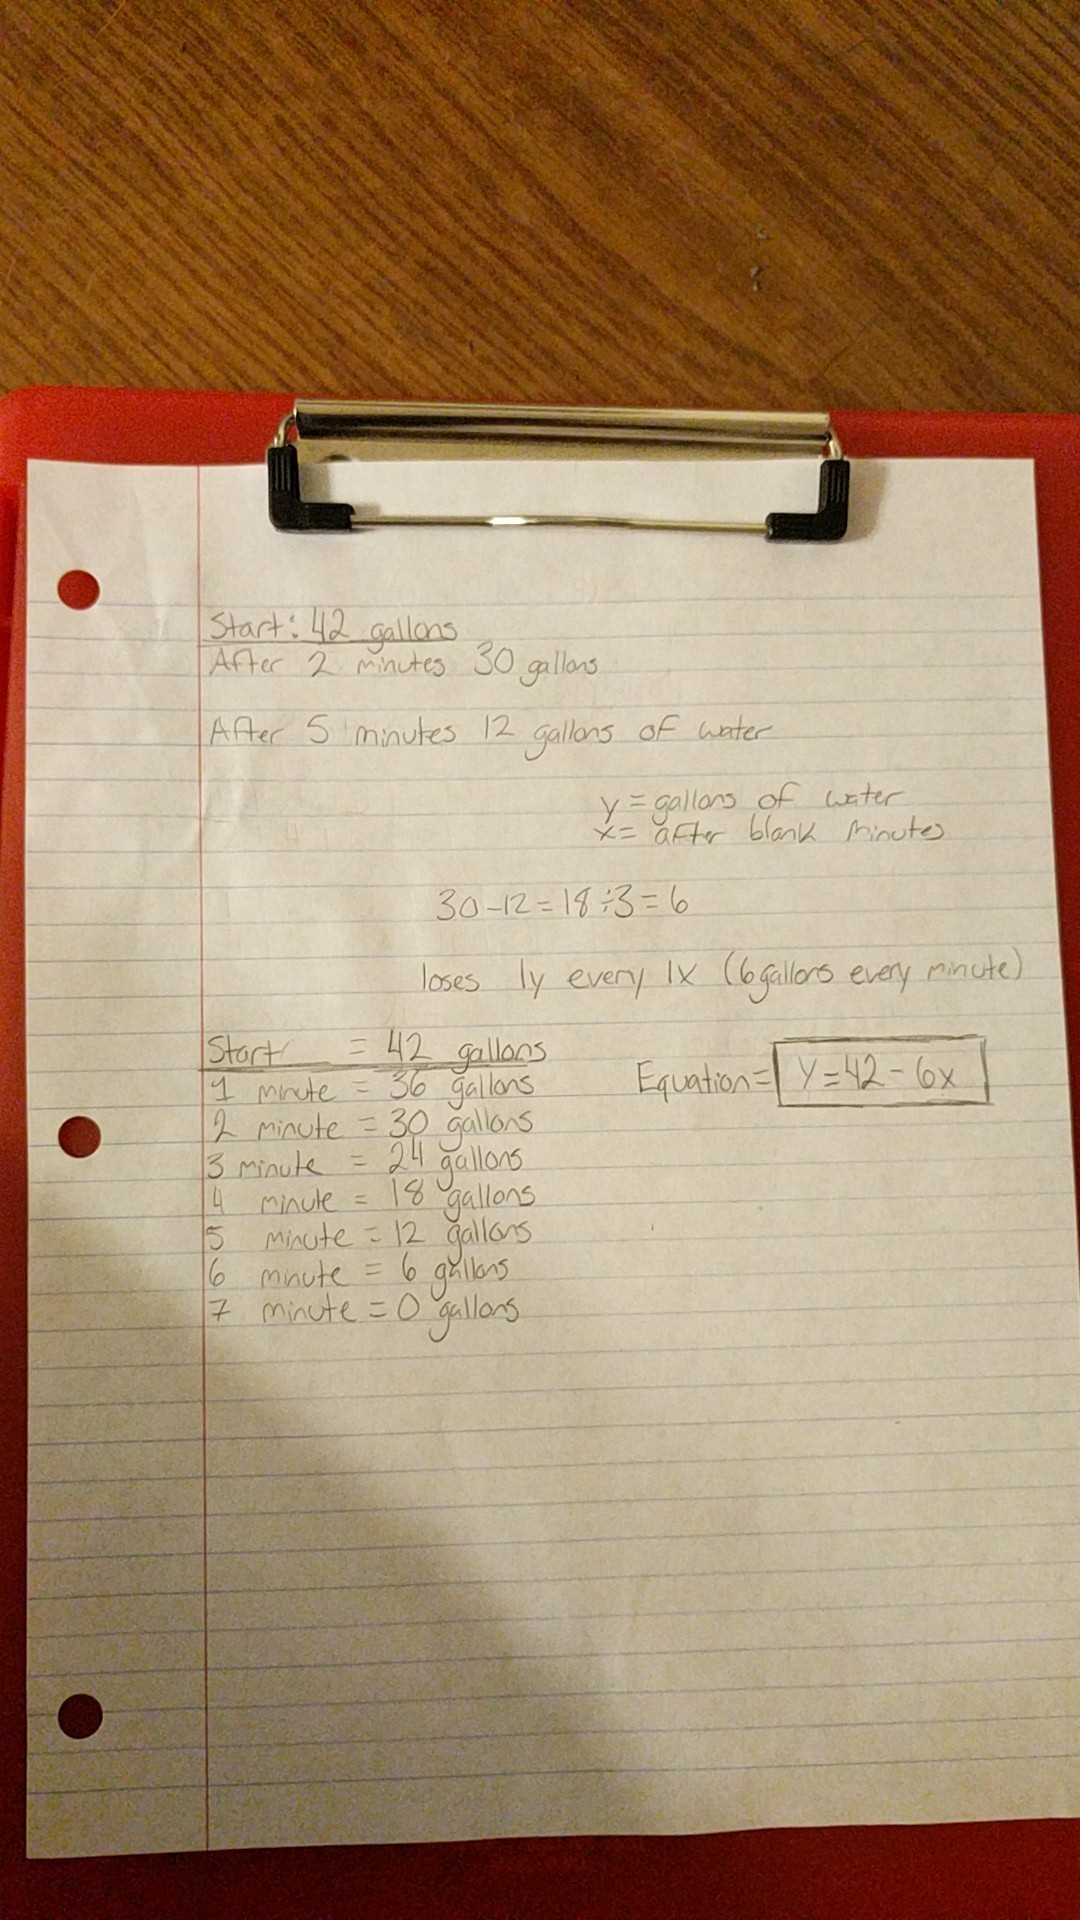 Start: 42 gallons
After 2 minutes 30 gallons
After 5 minutes 12 gallons of water
y = gallons of water
x = after blank minutes
30-12=18÷3=6
loses 1y every 1x (6 gallons every minute)
Start = 42 gallons
1 minute = 36 gallons
2 minute = 30 gallons
3 minute = 24 gallons
4 minute = 18 gallons
5 minute = 12 gallons
6 minute = 6 gallons
7 minute = 0 gallons
Equation= Y=42-6x